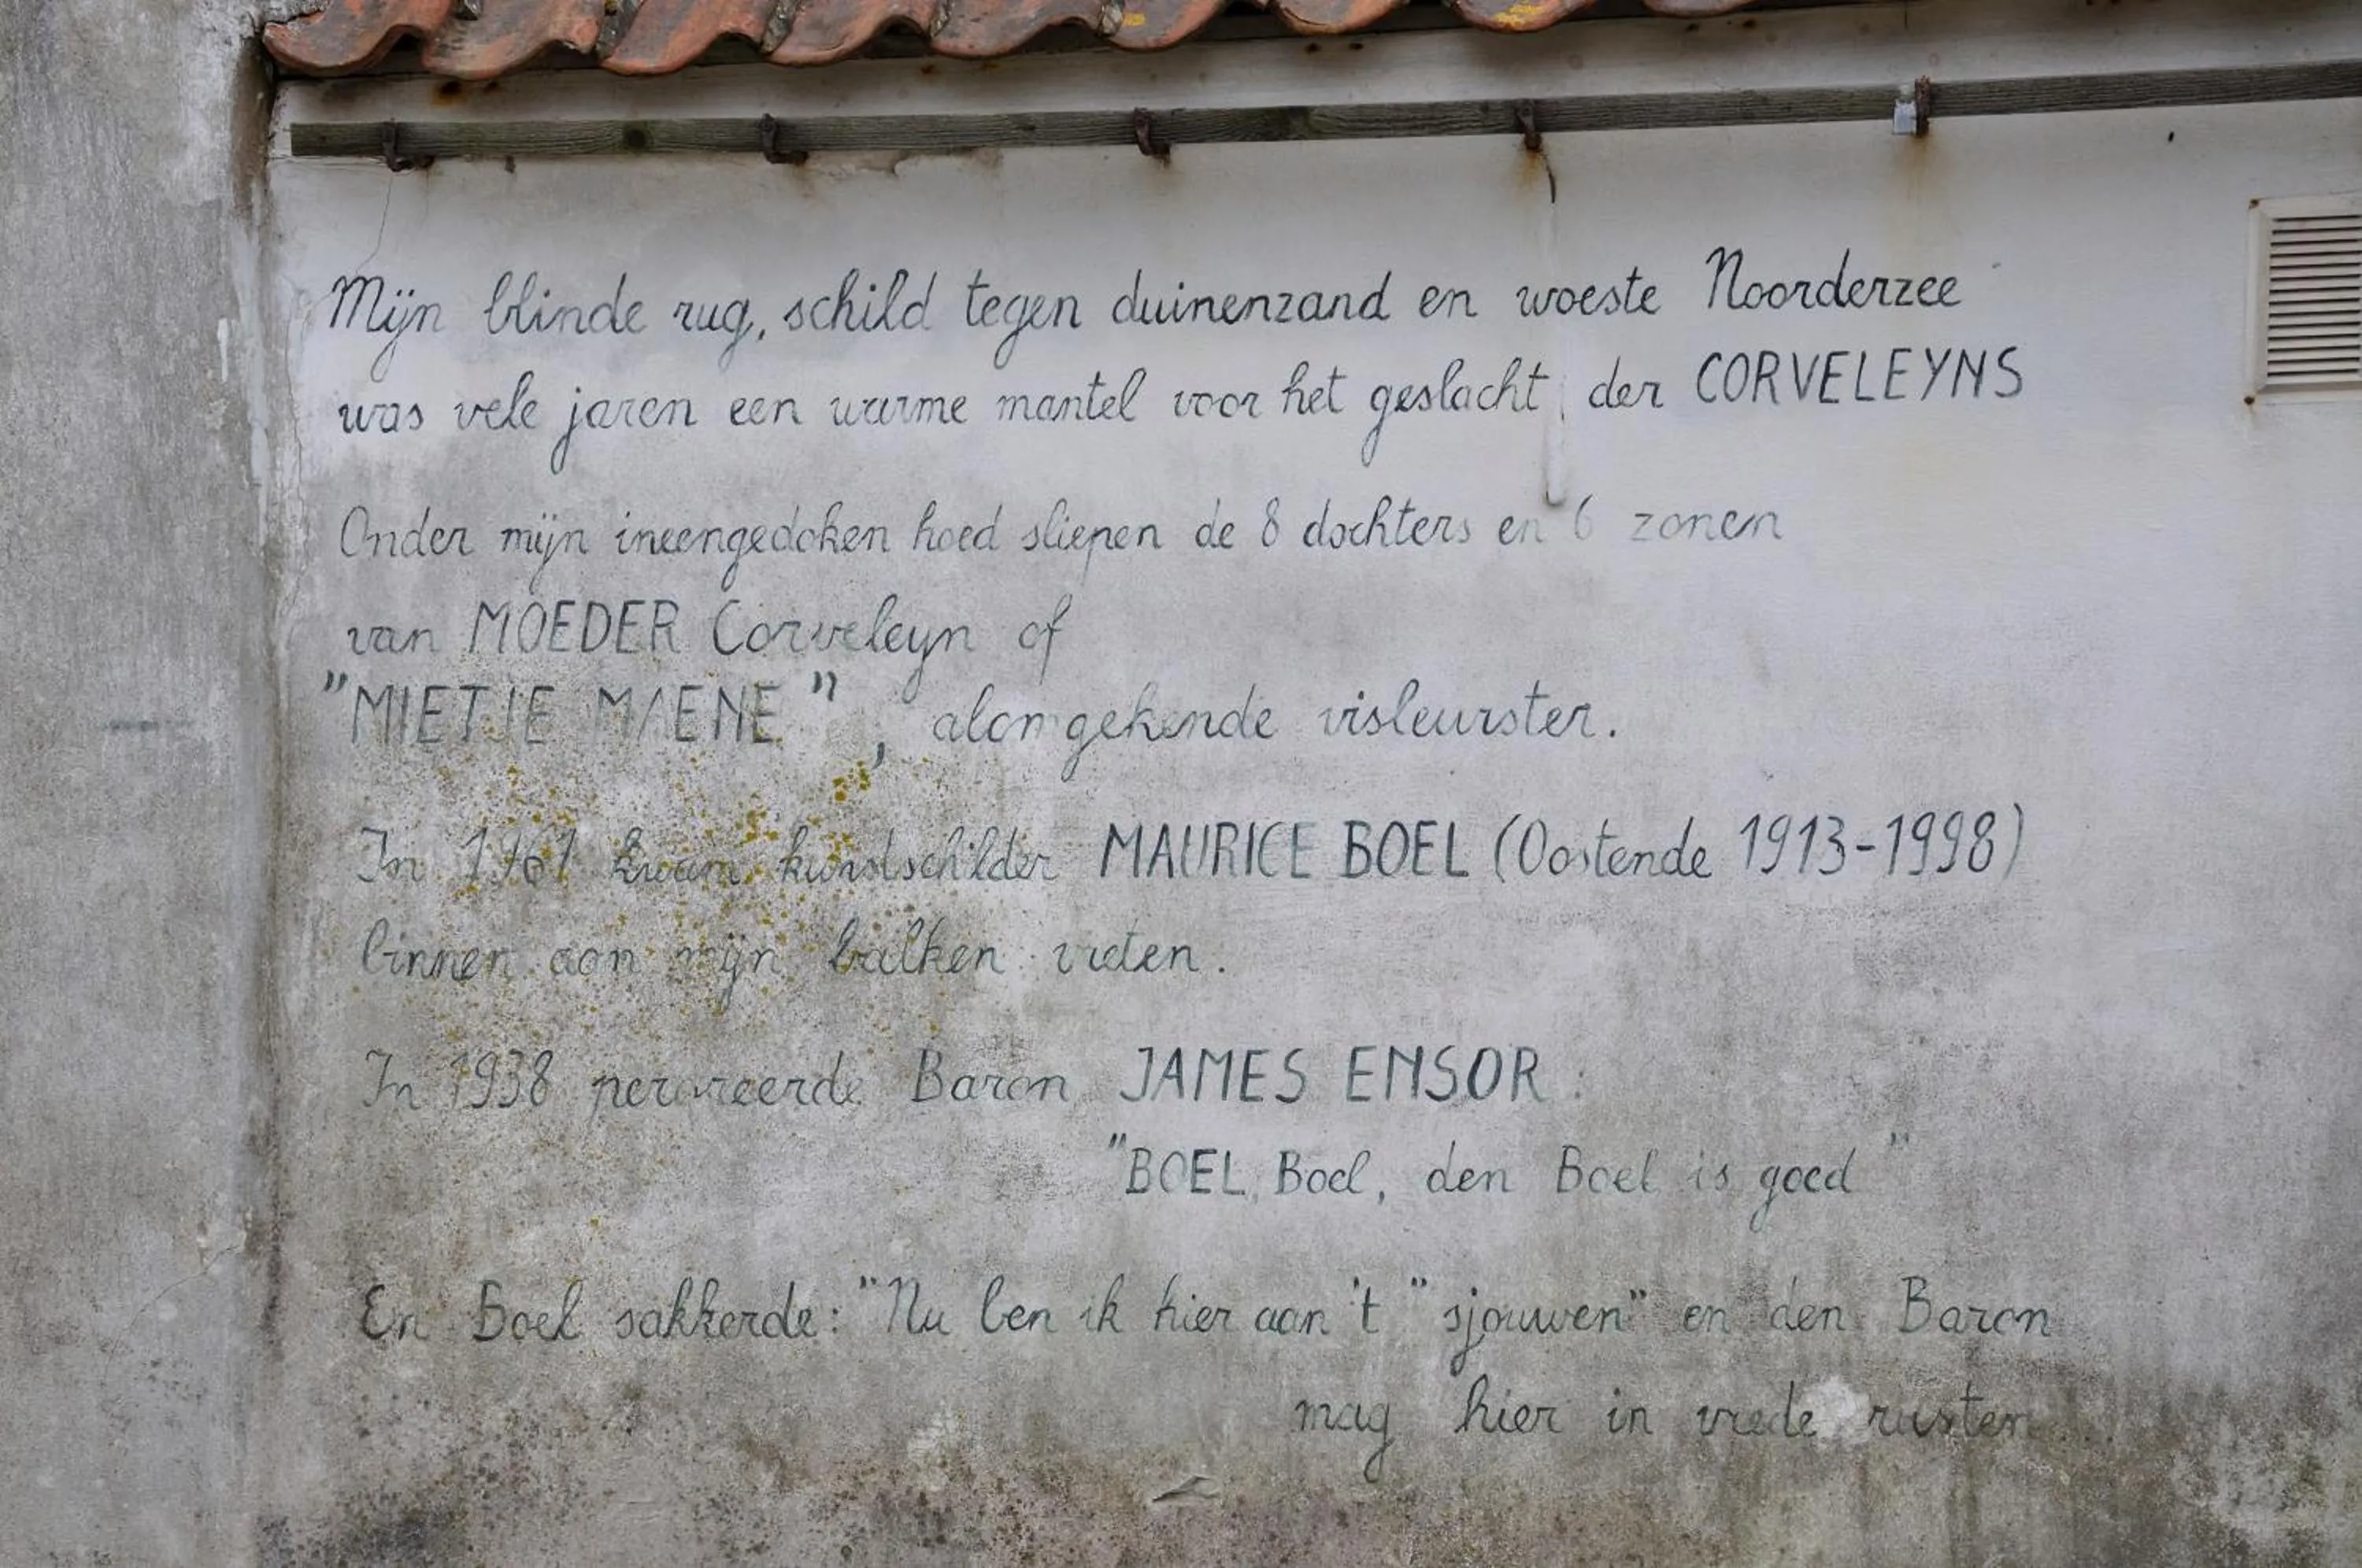 Mijn blinde rug, schild tegen duinenzand en woeste Noorderzee
was vele jaren een warme mantel voor het geslacht der CORVELEYNS
Onder mijn ineengedoken hoed sliepen de 8 dochters en 6 zonen
van MOEDER Corveleyn of
"MIETJE MAENE", alomgekende visleurster.
In 1961 kwam kunstschilder MAURICE BOEL (Oostende 1913-1998)
binnen aan mijn balken vreten.
In 1938 peroreerde Baron JAMES ENSOR:
"BOEL Boel, den Boel is goed"
En Boel sakkerde: "Nu ben ik hier aan 't "sjouwen" en den Baron
mag hier in vrede rusten...